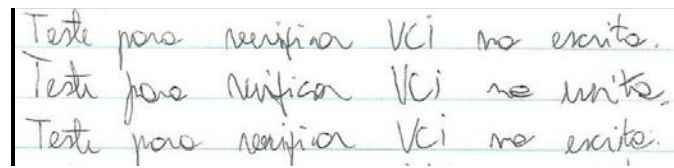 Teste para verificar VCI na escrita.
Teste para verificar VCI na escrita.
Teste para verificar VCI na escrita.